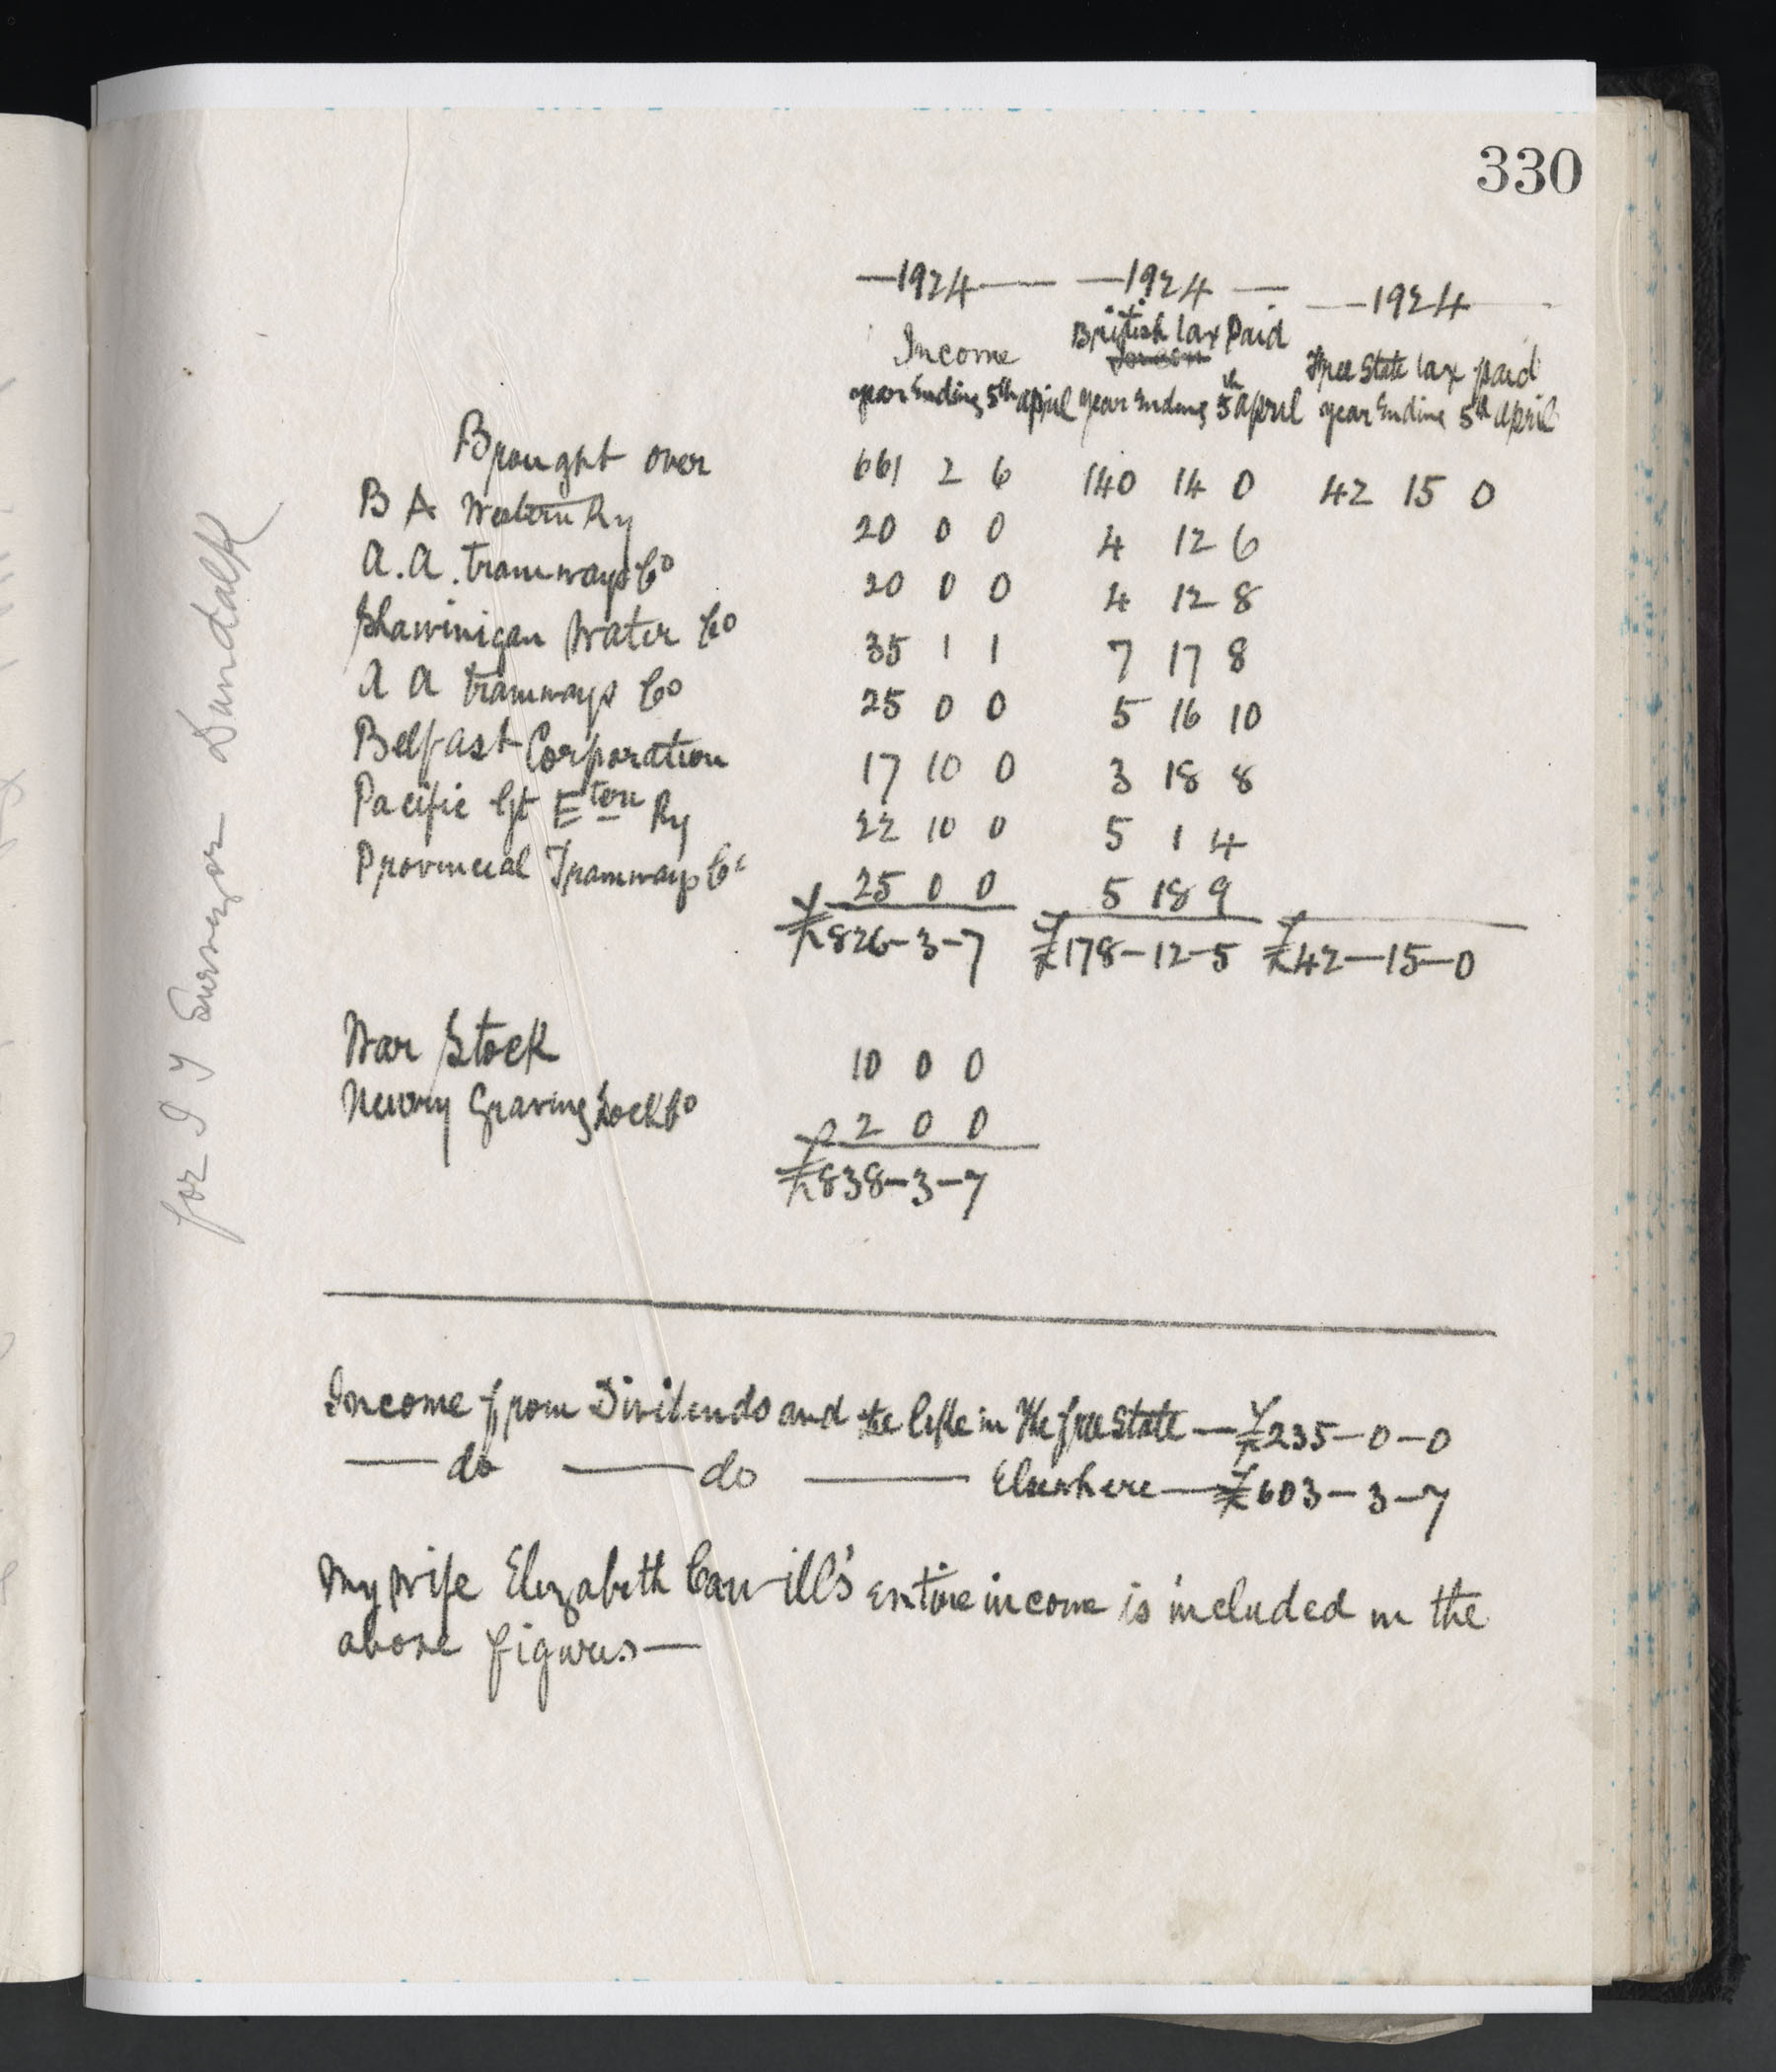 330
—1924— —1924— —1924—
Income British tax Paid Free State tax paid
year ending 5th april year ending 5th april year ending 5th april
Brought over 661 2 6 140 14 0 42 15 0
B A Western Ry 20 0 0 4 12 6
A.A. tramways Co 20 0 0 4 12 8
Shawinigan Water Co 35 1 1 7 17 8
A A tramways Co 25 0 0 5 16 10
Belfast Corporation 17 10 0 3 18 8
Pacific Gt Etern Ry 22 10 0 5 1 4
Provincial Tramways Co 25 0 0 5 18 9
£826-3-7 £178-12-5 £42-15-0
War Stock 10 0 0
Newry Graving Dock Co 2 0 0
£838-3-7
Income from Dividends and in the free State — £235-0-0
— do — do — Elsewhere — £603-3-7
My wife Elizabeth Carvill's entire income is included in the
above figures —
for I T Surveyor Dundalk